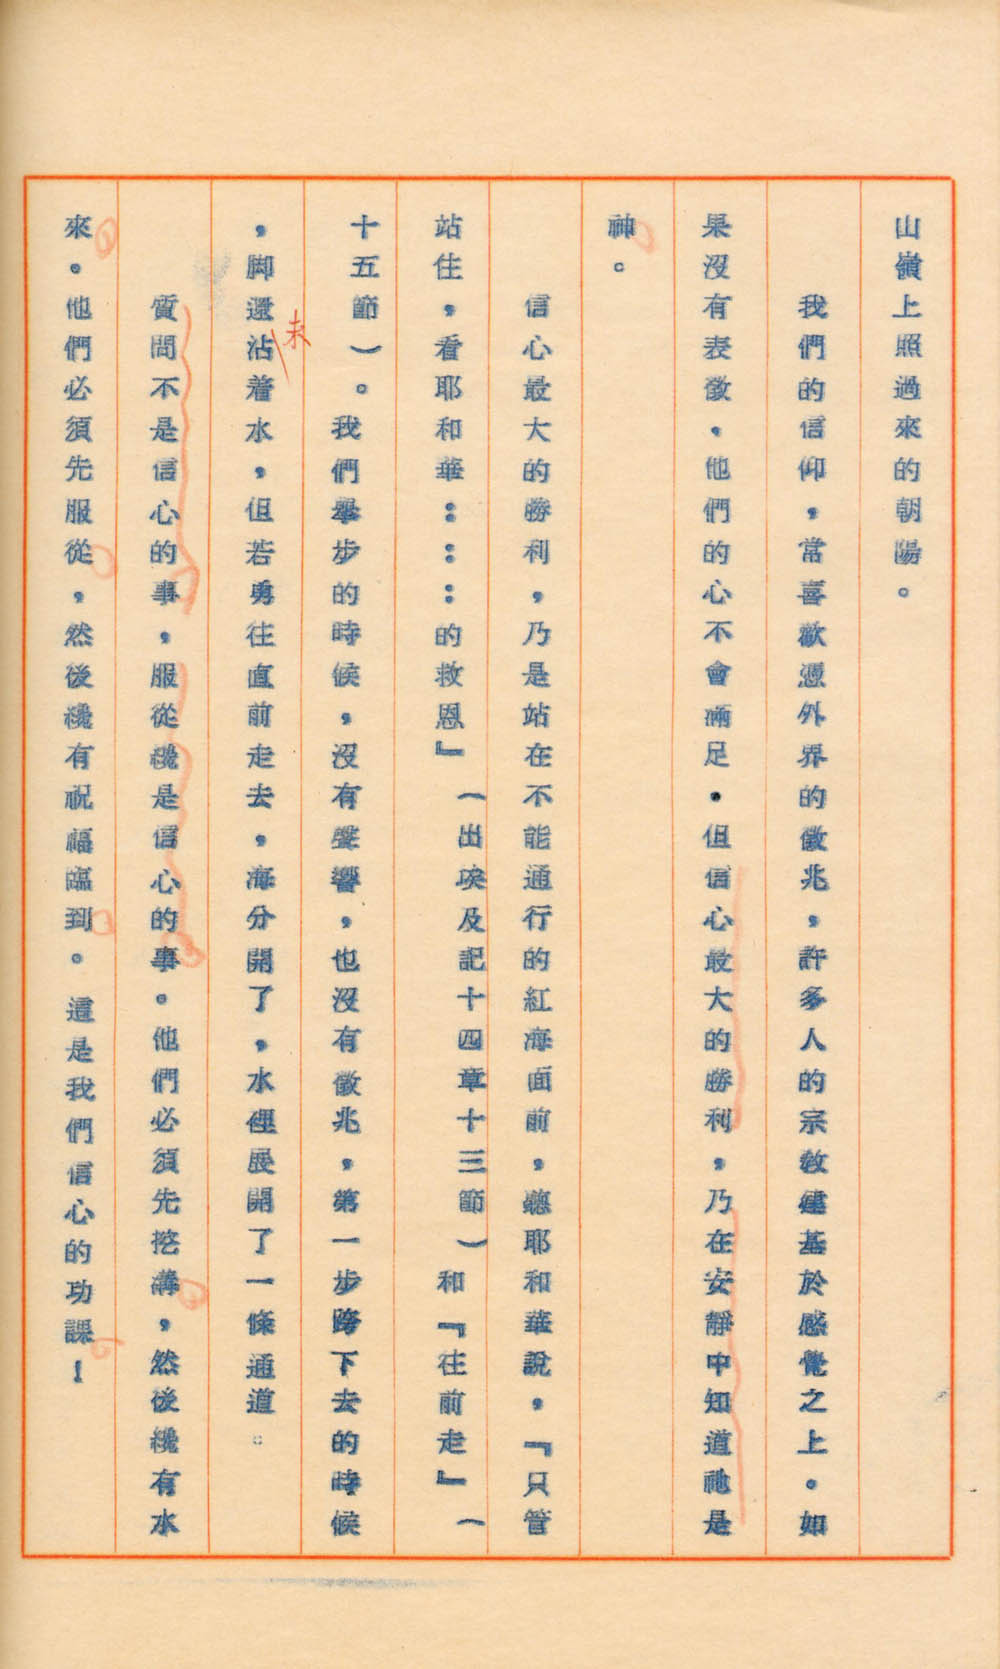 山嶺上照過來的朝陽。
我們的信仰，常喜歡憑外界的徵兆，許多人的宗教建基於感覺之上。如
果沒有表徵，他們的心不會滿足，但信心最大的勝利，乃在安靜中知道祂是
神。
信心最大的勝利，乃是站在不能通行的紅海面前，聽耶和華說，『只管
站住，看耶和華：：：的救恩』（出埃及記十四章十三節）和『往前走』（
十五節）。我們舉步的時候，沒有聲響，也沒有徵兆，第一步跨下去的時候
，脚還沾着水，但若勇往直前走去，海分開了，水裡展開了一條通道。
未
質問不是信心的事，服從纔是信心的事。他們必須先挖溝，然後纔有水
來。他們必須先服從，然後纔有祝福臨到。這是我們信心的功課！